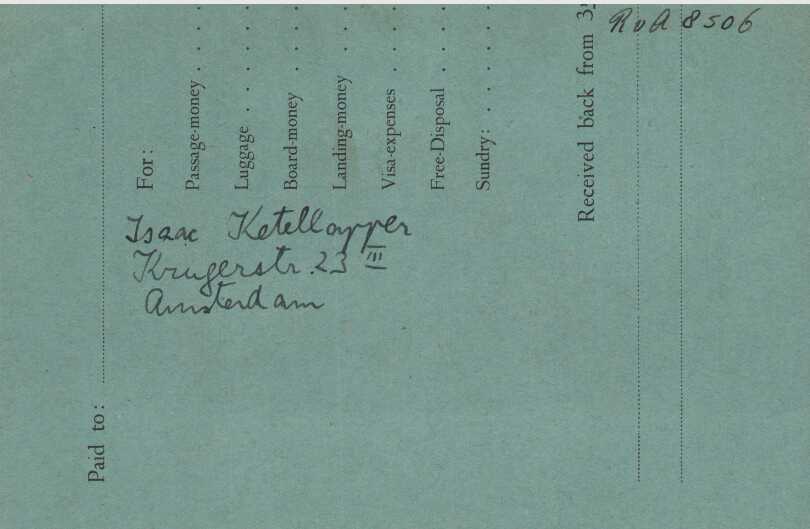 RvA 8506
Paid to:
For:
Passage-money . . .
Luggage . . . .
Board-money . . .
Landing-money . . .
Visa-expenses . . .
Free-Disposal . . .
Sundry: . . . .
Received back from
Isaac Ketellapper
Krugerstr. 23 III
Amsterdam